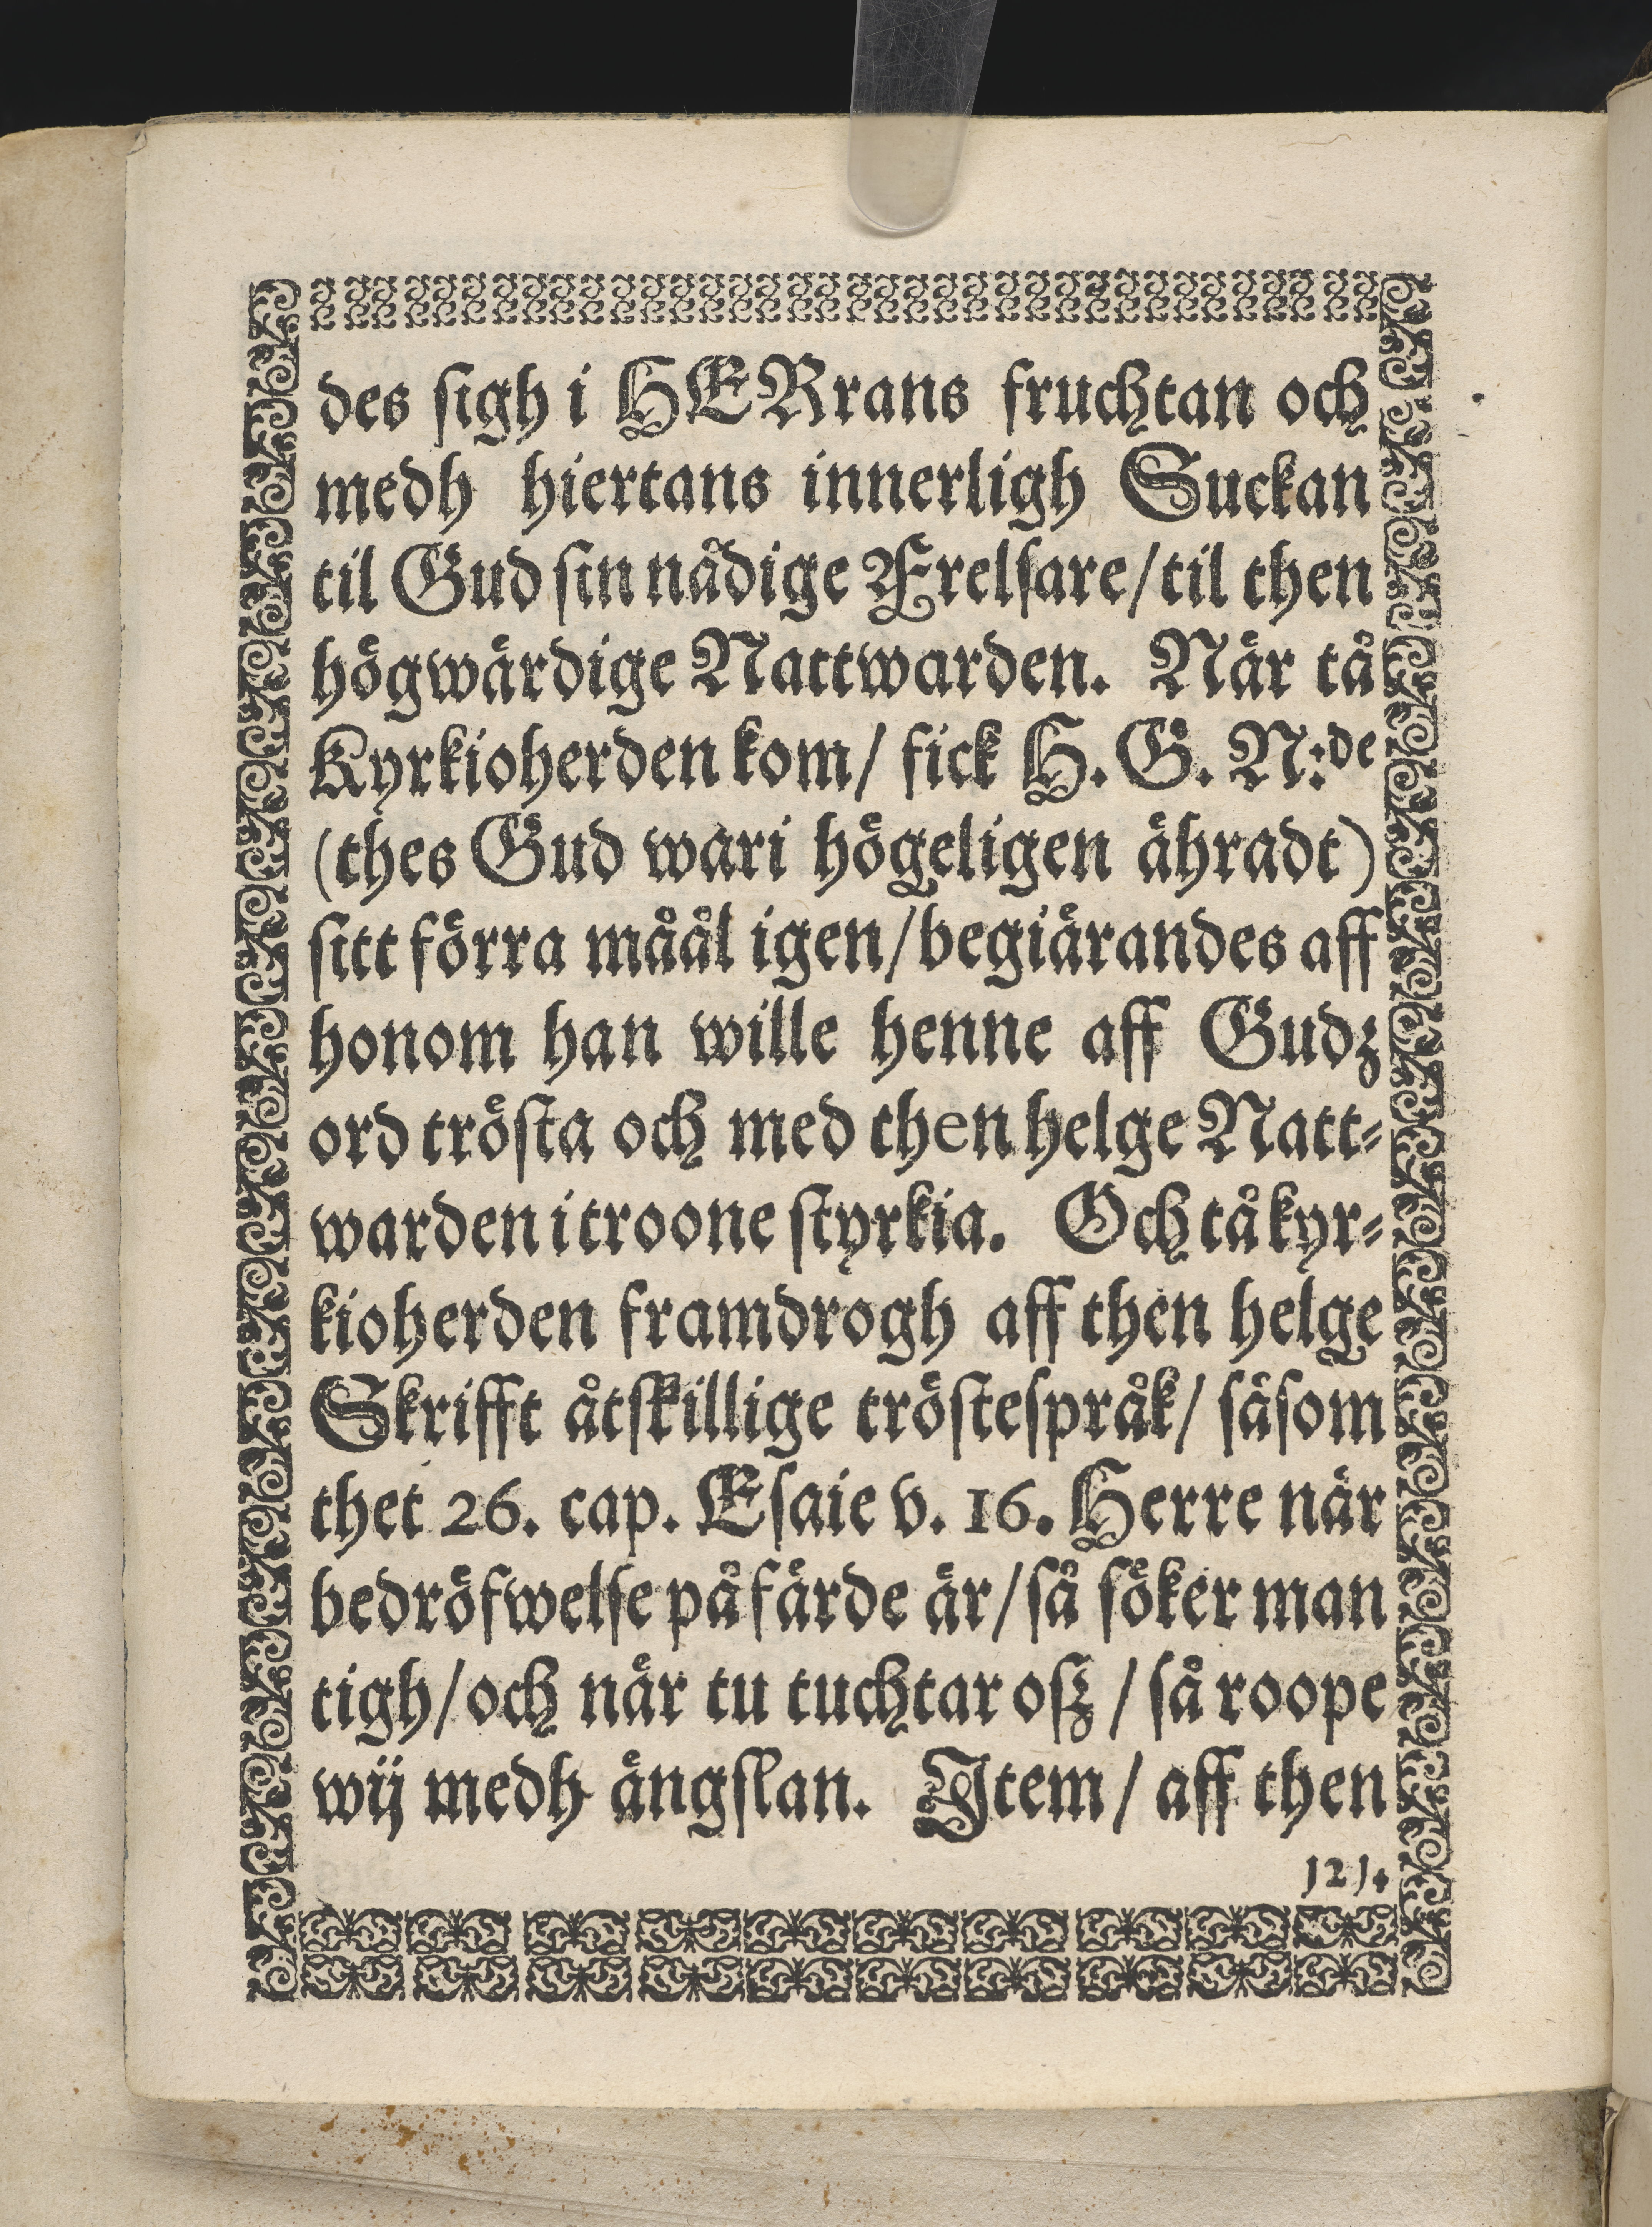 des sigh i HERrans fruchtan och
medh hiertans innerligh Suckan
til Gud sin nådige Frelsare/til then
högwärdige Nattwarden. När tå
Kyrkioherden kom/ fick H. G. N:de
(thes Gud wari högeligen ähradt)
sitt förra måål igen/begiärandes aff
honom han wille henne aff Gudz
ord trösta och med then helge Natt-
warden i troone styrkia. Och tå kyr-
kioherden framdrogh aff then helge
Skrifft åtskillige tröstespråk/ såsom
thet 26. cap. Esaie v. 16. Herre när
bedröfwelse på färde är/så söker man
tigh/och när tu tuchtar oß / så roope
wij medh ängslan. Item/ aff then
121.